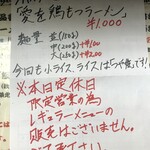 「愛を鶏もつラーメン」
¥1,000
麺量 並(150g)
中(200g)+¥100
大(250g)+¥200
今回も小ライス、ライスは「つや姫」です!
※本日定休日
限定営業の為
レギュラーメニューの
販売はございません。